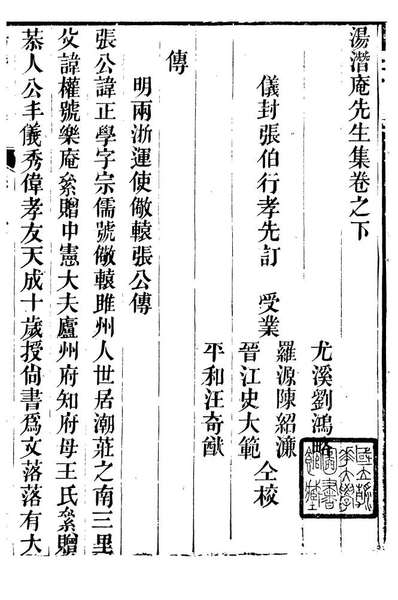 湯潛庵先生集卷之下
尤溪劉鴻略
羅源陳紹濂
儀封張伯行孝先訂 受業 晉江史大範 仝校
平和汪奇猷
傳
明兩浙運使儆轅張公傳
張公諱正學字宗儒號儆轅睢州人世居潮莊之南三里
父諱權號樂庵絫贈中憲大夫廬州府知府母王氏絫贈
恭人公丰儀秀偉孝友天成十歲授尙書爲文落落有大